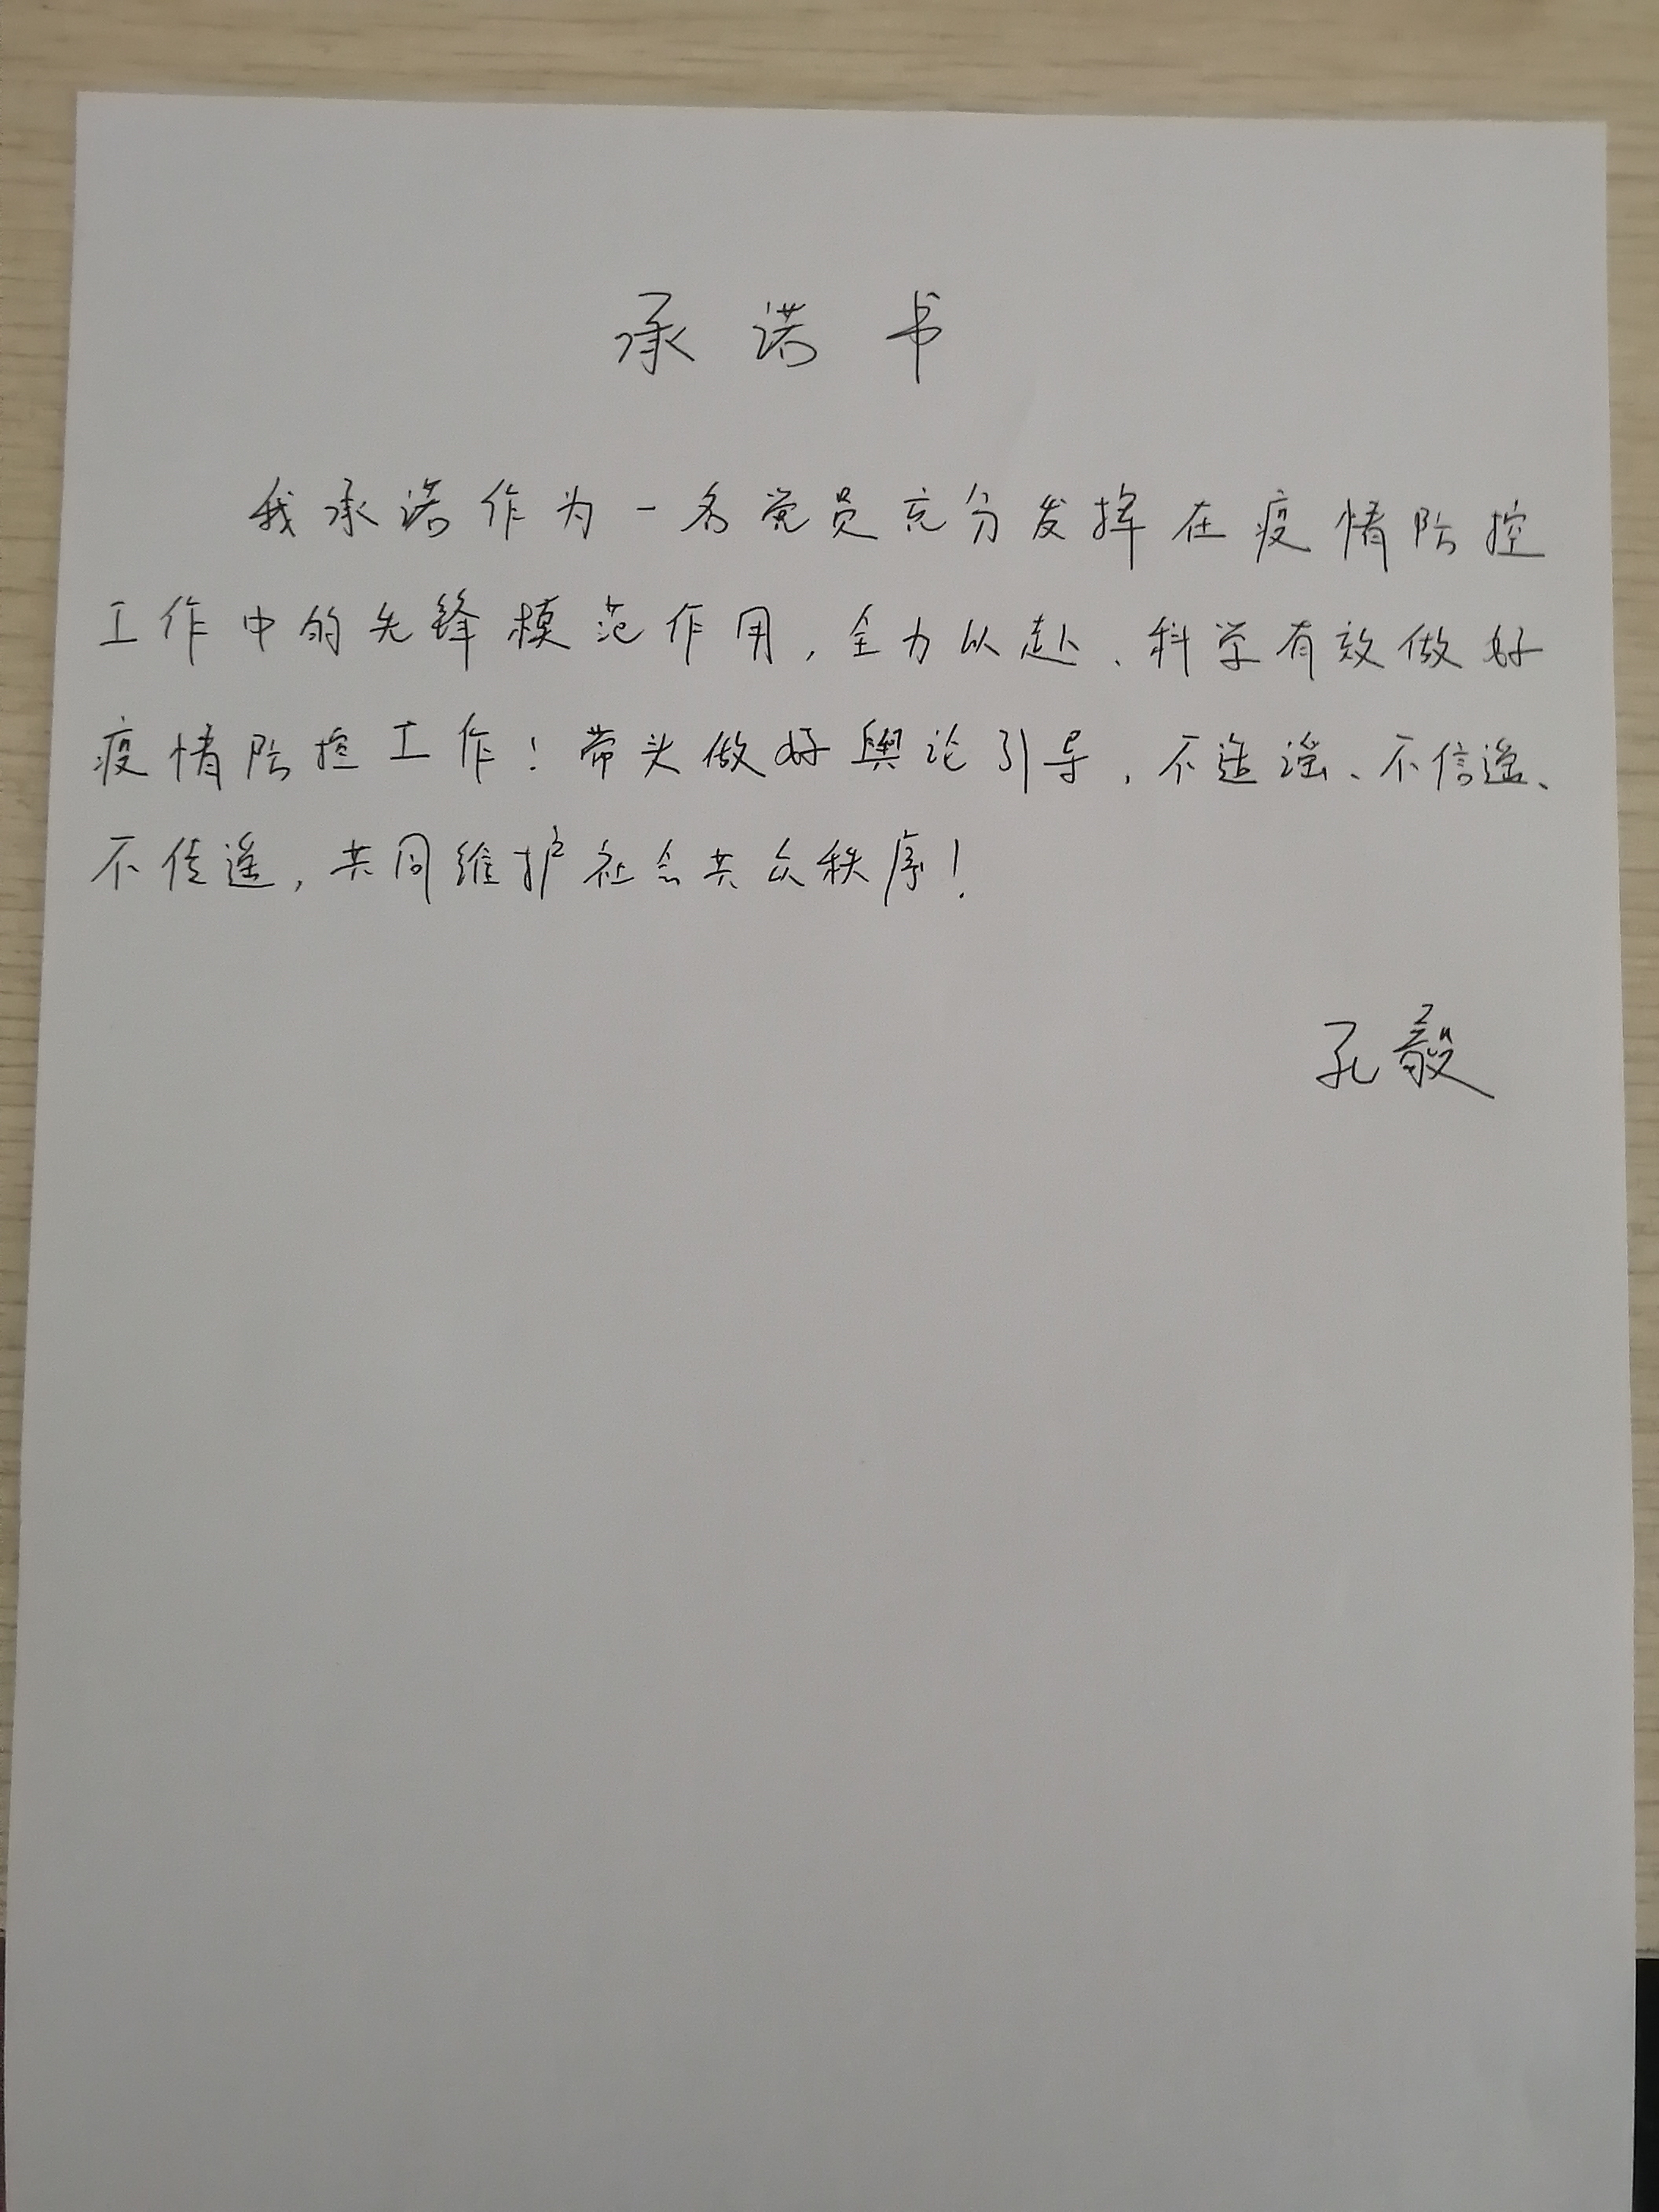 承诺书
我承诺作为一名党员充分发挥在疫情防控
工作中的先锋模范作用，全力以赴、科学有效做好
疫情防控工作！带头做好舆论引导，不造谣、不信谣、
不传谣，共同维护社会共众秩序！
孔毅